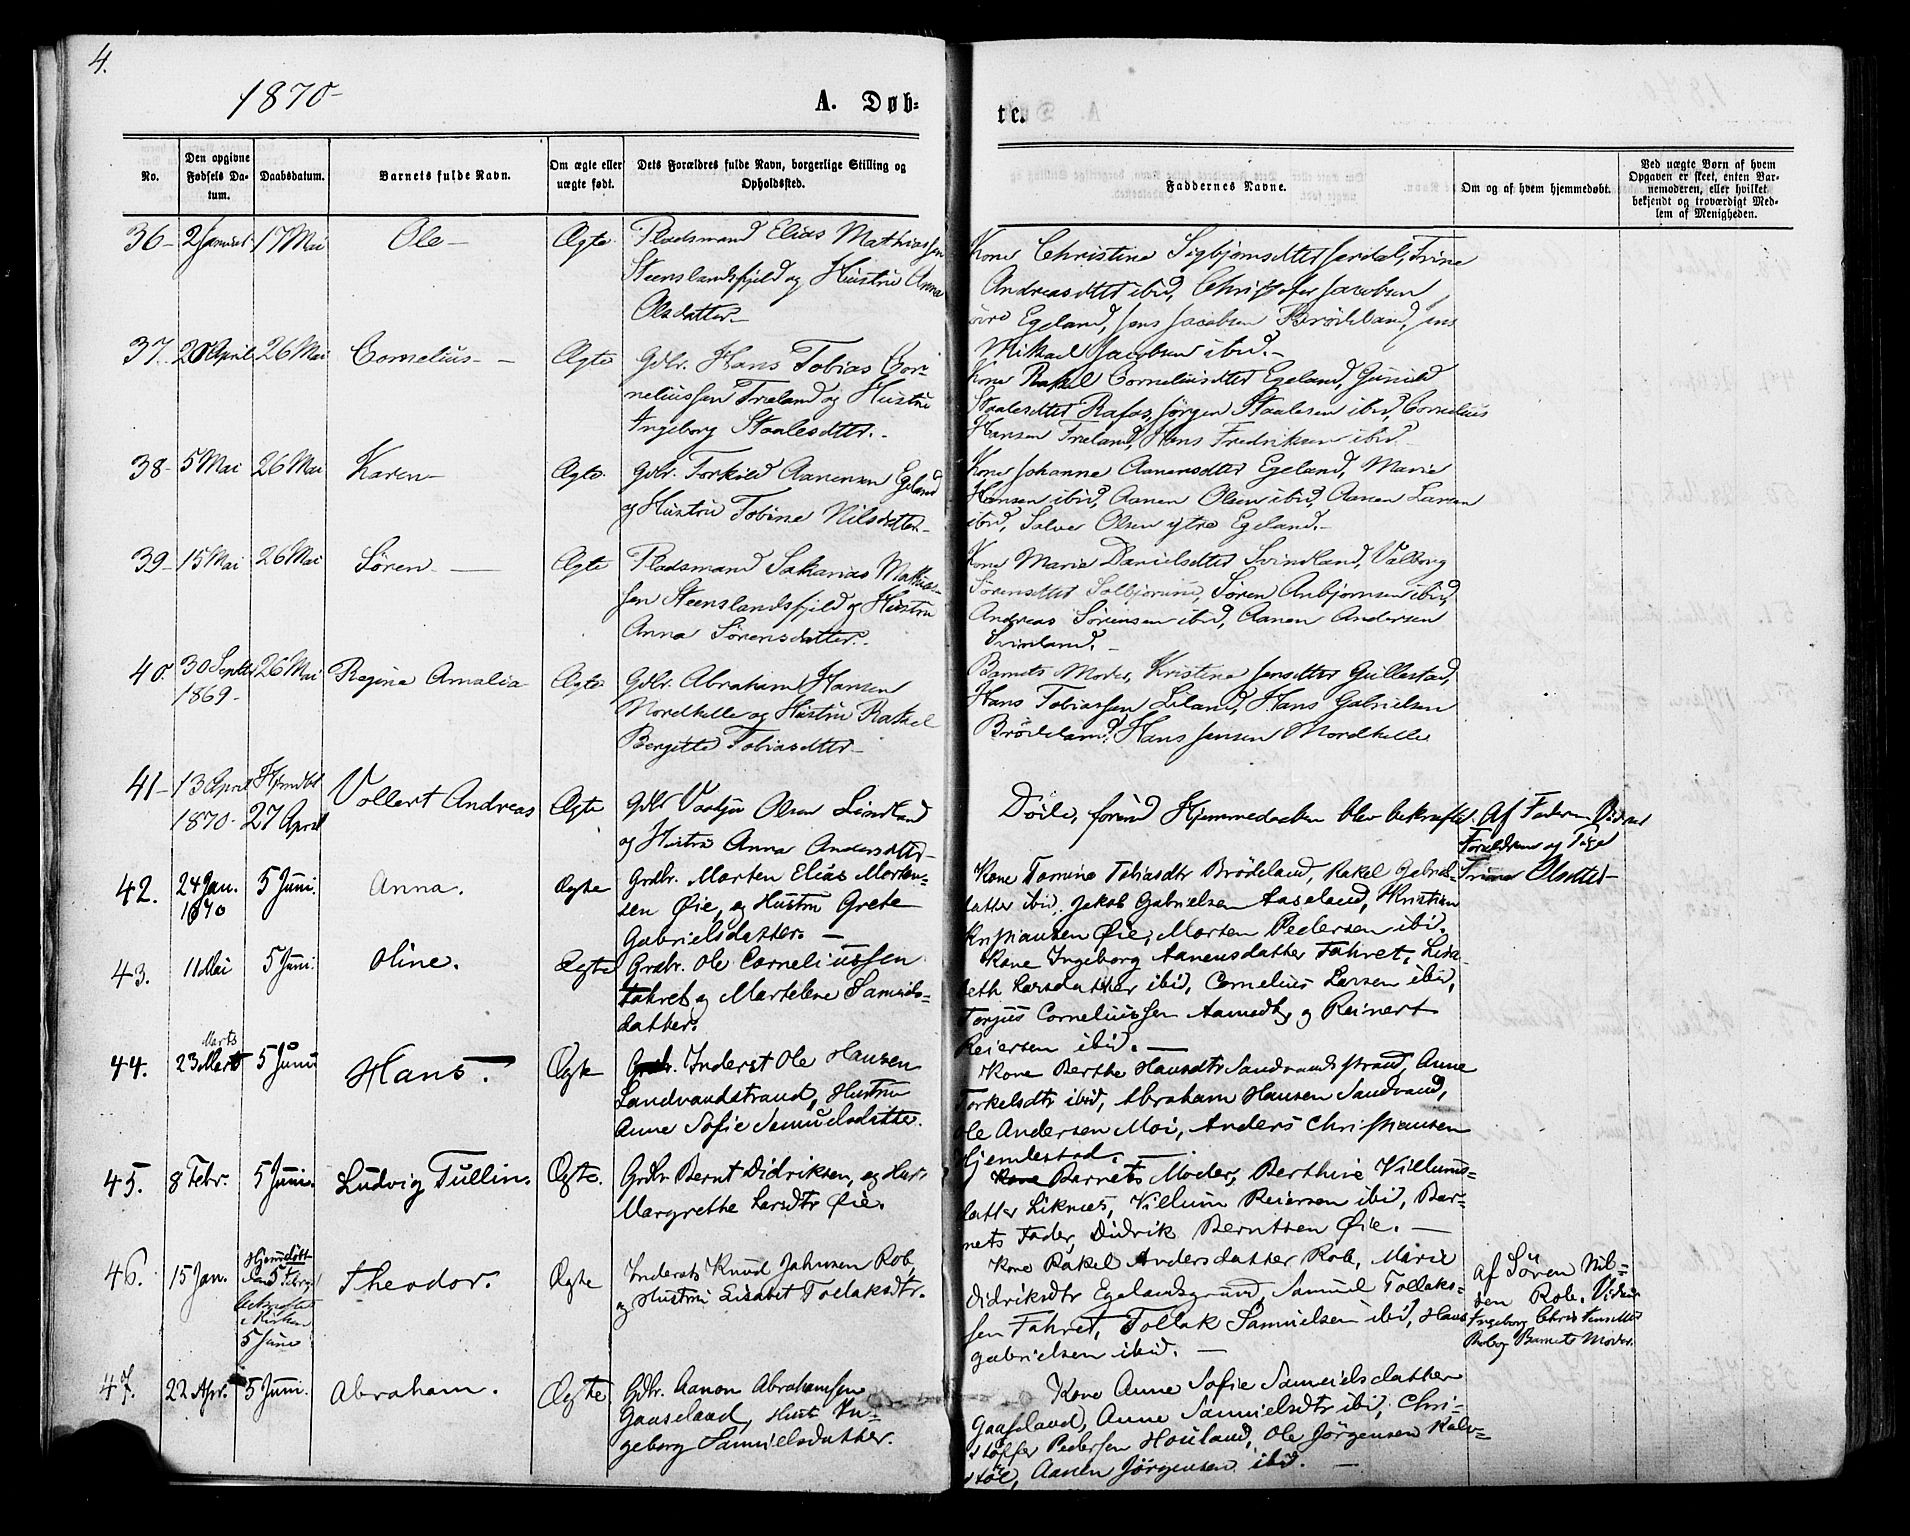 4.
1870-
A. Døb-
te.
No.
Den opgivne Fødsels Datum.
Daabsdatum.
Barnets fulde Navn.
Om ægte eller uægte født.
Dets Forældres fulde Navn, borgerlige Stilling og Opholdssted.
Faddernes Navne.
Om og af hvem hjemmedøbt.
Ved uægte Børn af hvem Opgaven er skeet, enten Barnemoderen, eller hvilket bekjendt og troværdigt Medlem af Menigheden.
36- 2 Januar 17 Mai Ole- Ægte. Pladsmand Elias Mathiassen
Steenslandsfjeld og Hustru Anna
Olsdatter.-
Kone Christine Sigbjørnsdtter Trine
Andreasdtter ibid, Christofer Jacobsen
Egeland, Jens Jacobsen Brødeland,
Mikael Jacobsen ibid.-
37. April 26 Mai Cornelius- Ægte Gdbr. Hans Tobias Cor-
neliussen Treland og Hustru
Ingeborg Staalesdtter.-
Kone Rakel Corneliusdtter Egeland, Gunild
Staalesdtter Rafos, Jørgen Staalesen ibid, Cornelius
Hansen Treland, Hans Fredriksen ibid.-
38- 5 Mai 26 Mai Karen- Ægte. Gdbr. Torkild Aanensen Egeland
og Hustru Tobine Nilsdatter-
Kone Johanne Aanensdtter Egeland, Marie
Hansen ibid, Aanen Olsen ibid, Aanen Larsen
ibid, Salve Olsen ytre Egeland.-
39- 15 Mai 26 Mai Søren- Ægte Pladsmand Sakarias Mathias-
sen Steenslandsfjeld og Hustru
Anna Sørensdatter.-
Kone Marie Danielsdtter Svindland, Valborg
Sørensdtter Søren Anbjørnsen ibid,
Andreas Sørensen ibid, Aanen Andersen
Svindland.-
40. 30 Septbr 1869- 26 Mai Regine Amalia Ægte Gdbr. Abraham Hansen
Nordhelle og Hustru Rakel
Bergitte Tobiasdtter-
Barnets Moder, Kristine Jensdtter Gullestad,
Hans Tobiassen Liland, Hans Gabrielsen
Brødeland, Hans Jensen Nordhelle
41- 13 April 1870- Hjemdbt 27 April Vollert Andreas Ægte Gdbr Olsen Lindland
og Hustru Anna Andersdtter-
Døde, førend Hjemmedaaben blev bekræftet. Af Faderen, Vidner
Forældrene og Pige
Trine Olsdtter-
42. 24 Jan. 1870 5 Juni. Anna. Ægte Grdbr. Morten Elias Morten-
sen Øie, og Hustru Grete
Gabrielsdatter. -
Kone Tomine Tobiasdtr Brødeland, Rakel Gabriels-
datter ibid, Jakob Gabrielsen Aaseland, Kristian
Kristiansen Øie, Morten Pedersen ibid.
43. 11 Mai 5 Juni. Oline. Ægte Grdbr. Ole Corneliussen
Fahret og Martelene Samuels-
datter.
Kone Ingeborg Aanensdatter Fahret, Lisa-
beth Larsdatter ibid, Cornelius Larsen ibid,
Torjus Corneliussen Aamodt, og Reinert
Reiersen ibid. -
44. 23 Marts 5 Juni Hans. Ægte Inderst Ole Hansen
Sandvandstrand, Hustru
Anne Sofie Samuelsdatter.
Kone Berthe Hansdtr Sandvandstrand, Anne
Torkelsdtr ibid, Abraham Hansen Sandvand,
Ole Andersen Moi, Anders Christiansen
Hjemlestad. -
45. 8 Febr. 5 Juni. Ludvig Tullin. Ægte. Grdbr Bernt Didriksen, og Hust.
Margrethe Larsdtr Øie.
Kone Barnets Moder, Berthine Villums-
datter Liknæs, Villum Reiersen ibid, Bar-
nets Fader, Didrik Berntsen Øie. -
46. 15 Jan. Hjemdøbt den 5 Febr. bekræftet i Kirken 5 Juni Theodor. Ægte Inderst Knud Johnsen Rob,
og Hustru Elisabet Tollaksdtr.
Kone Rakel Andersdatter Rob, Marie
Didriksdtr Egelandsgrund, Samuel Tollaks-
sen Fahret, Tollak Samuelsen ibid, Hans
Gabrielsen ibid. -
af Søren Nil-
sen Rob. Vidner
Ingeborg Christensdtter
Rob og Barnets Moder.
47. 22 Apr. 5 Juni. Abraham. Ægte. Gdbr. Aanon Abrahamsen
Gaaseland, Hust In-
geborg Samuelsdatter.
Kone Anne Sofie Samuelsdatter
Gaaseland, Anne Samuelsdtr ibid, Chri-
stoffer Pedersen Houland, Ole Jørgensen Kalv-
støl, Aanen Jørgensen ibid. -